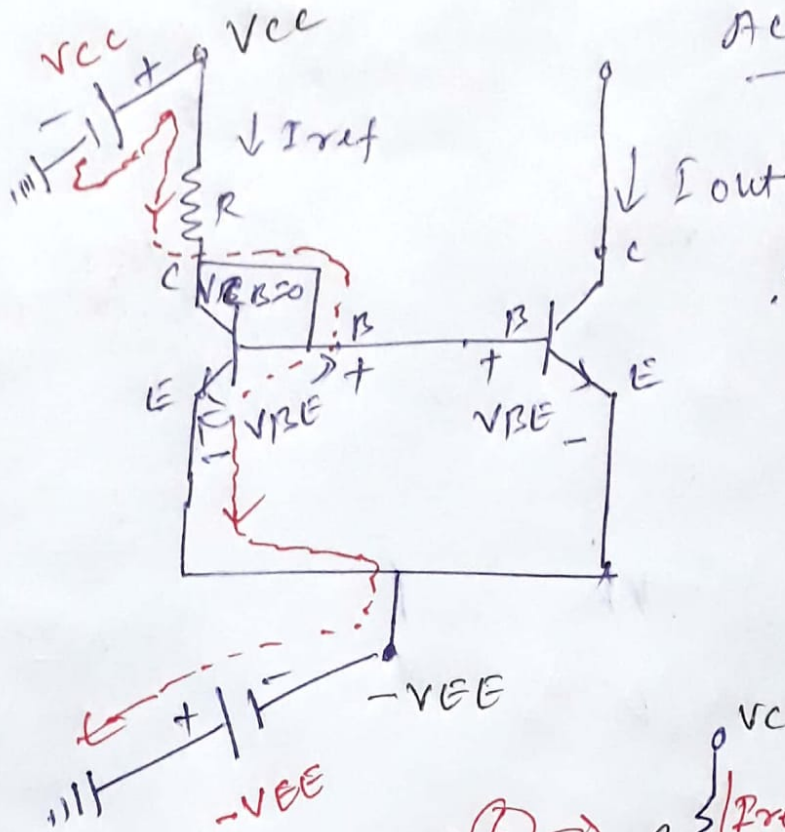 VCC
VCC
Ac
+
-
↓ Iref
↓ I out
R
C
C
VCB=0
B
B
+
+
E
E
VBE
VBE
-
-
-VEE
+
-
-VEE
VC
Ire